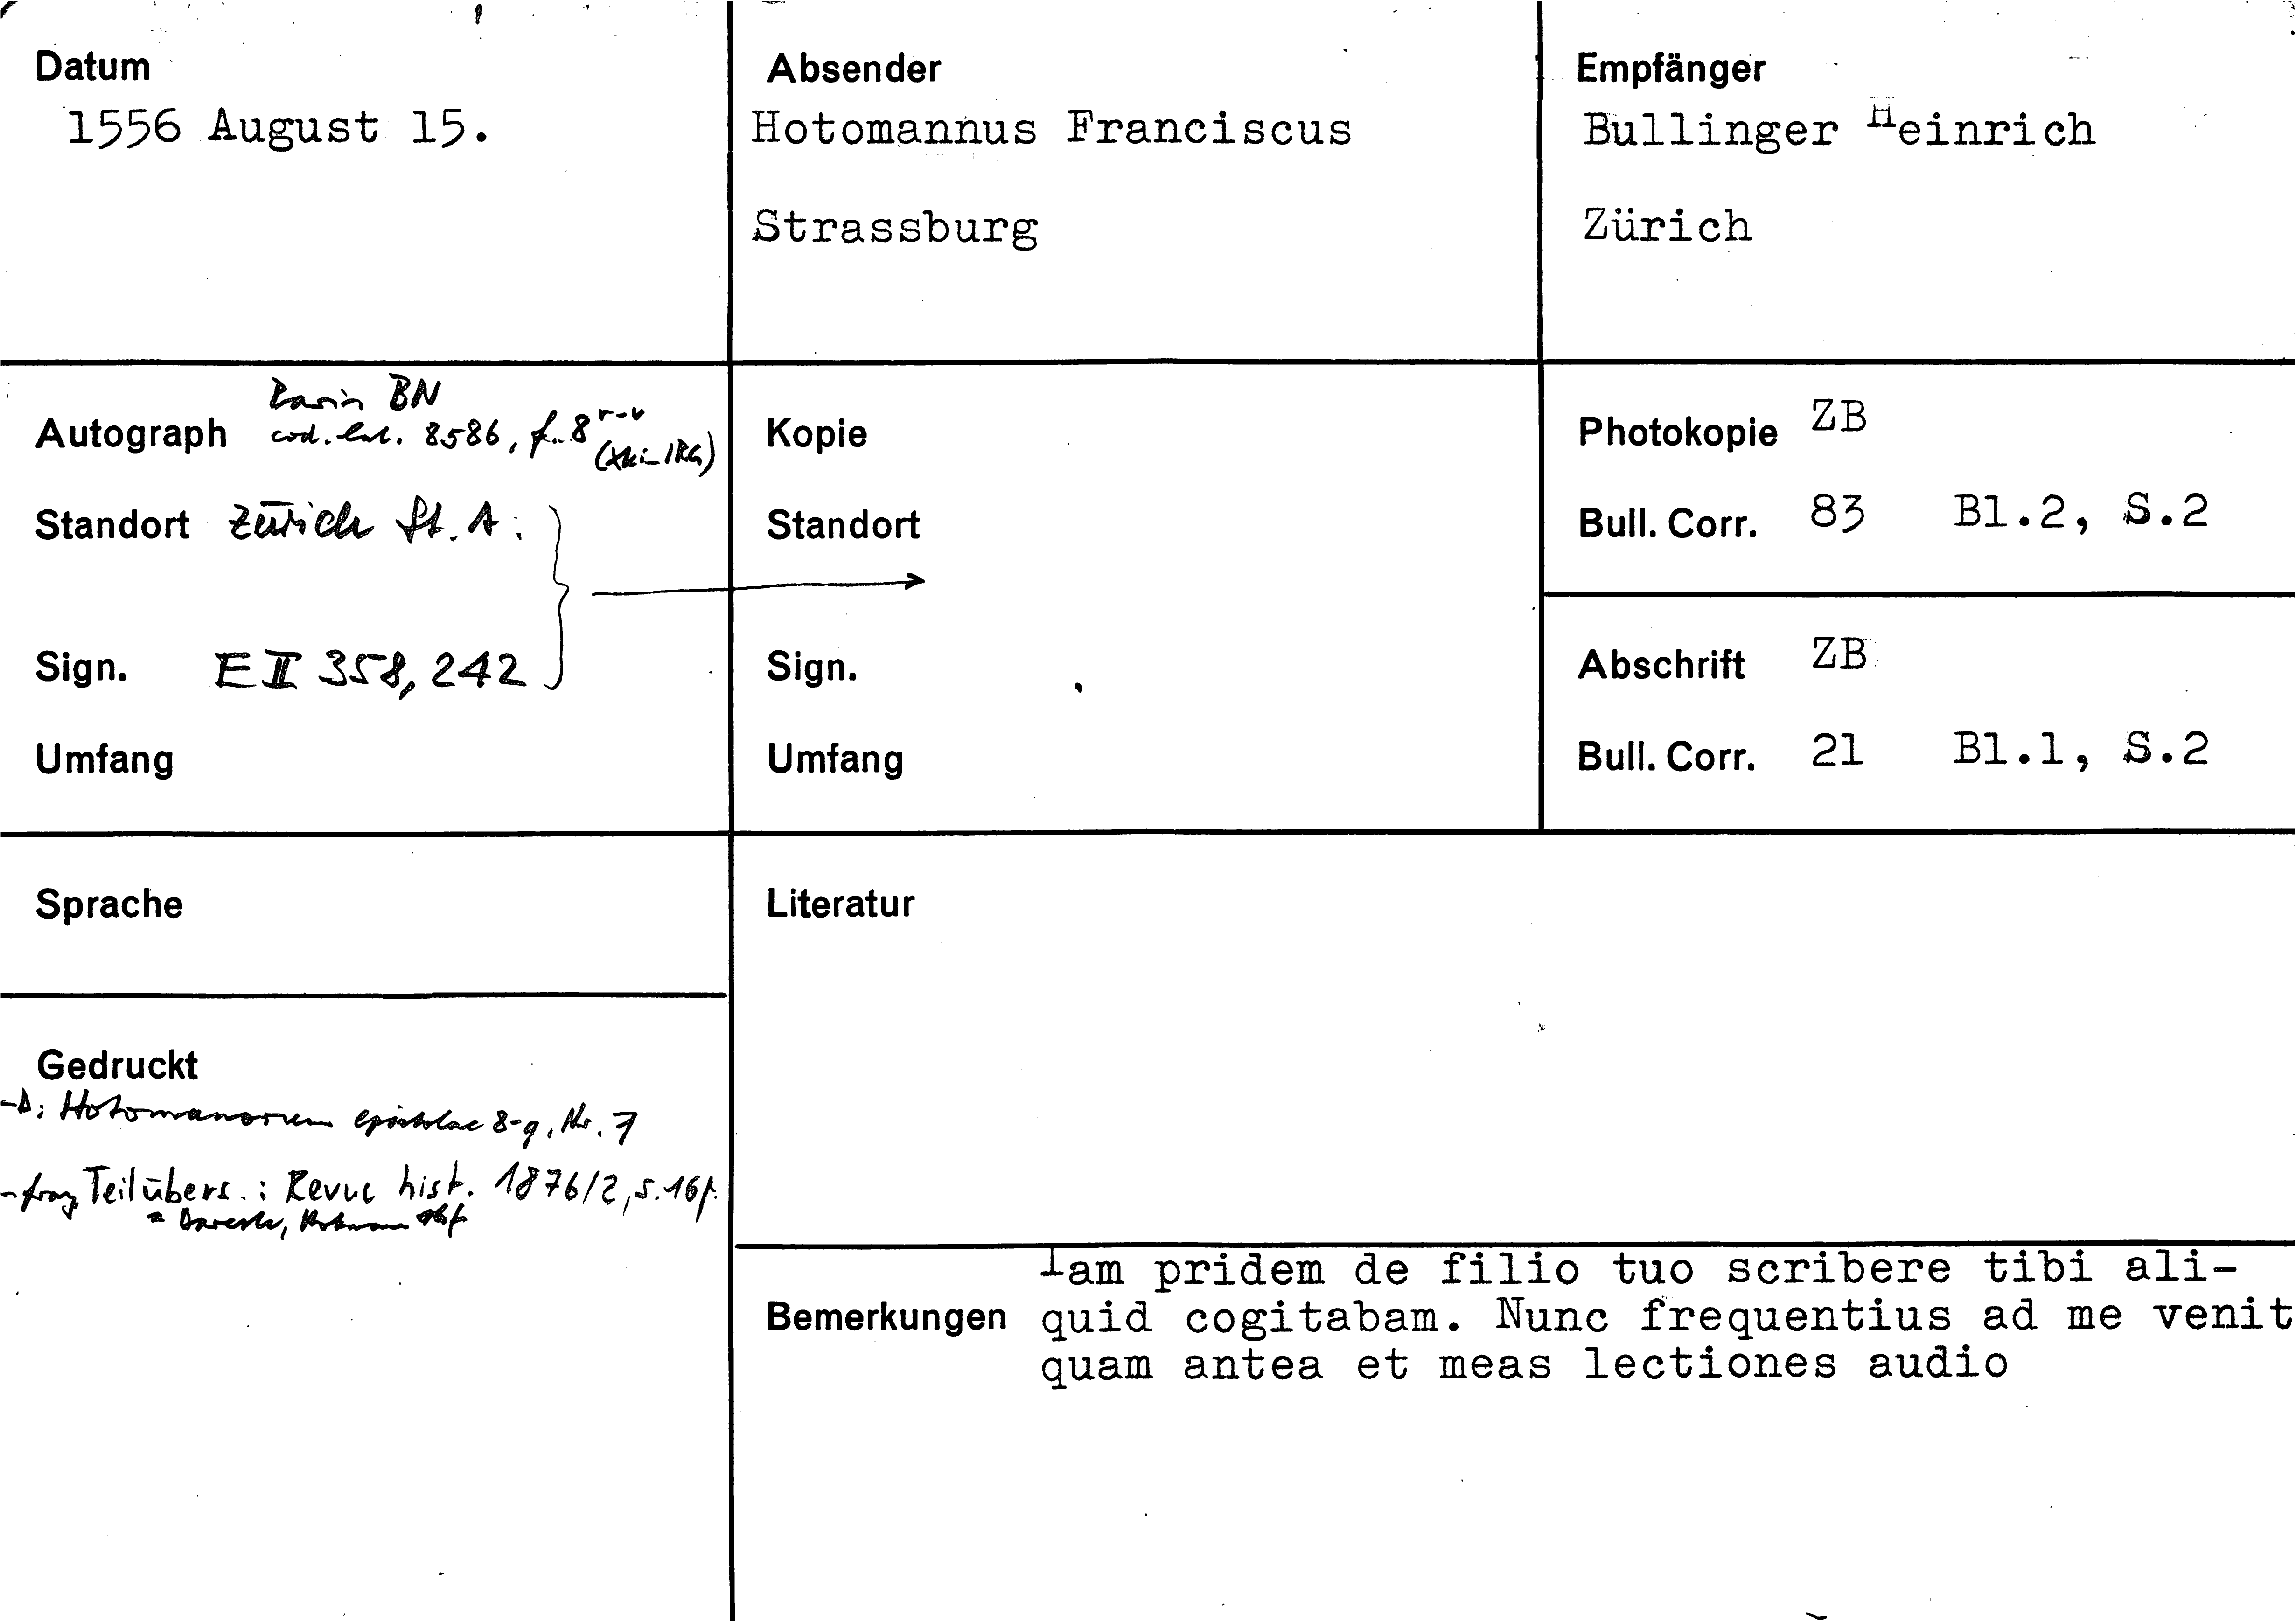 Datum
1556 August 15.
Absender
Hotomannus Franciscus
Strassburg
Empfänger
Bullinger Heinrich
Zürich
Autograph
Paris BN
cod. lat. 8586, f. 8 r-v
Standort Zürich St. A.
Sign. E II 358, 242
Umfang
Kopie
Standort
Sign.
Umfang
Photokopie ZB
Bull. Corr. 83 Bl.2, S.2
Abschrift ZB
Bull. Corr. 21 Bl.1, S.2
Sprache
Gedruckt
- D: Hotomanorum epistolae 8-9, Nr. 7
- franz Teilübers.: Revue hist. 1876/2, S. 16f.
= Dareste, Hotman
Literatur
Bemerkungen
Iam pridem de filio tuo scribere tibi ali-
quid cogitabam. Nunc frequentius ad me venit
quam antea et meas lectiones audio